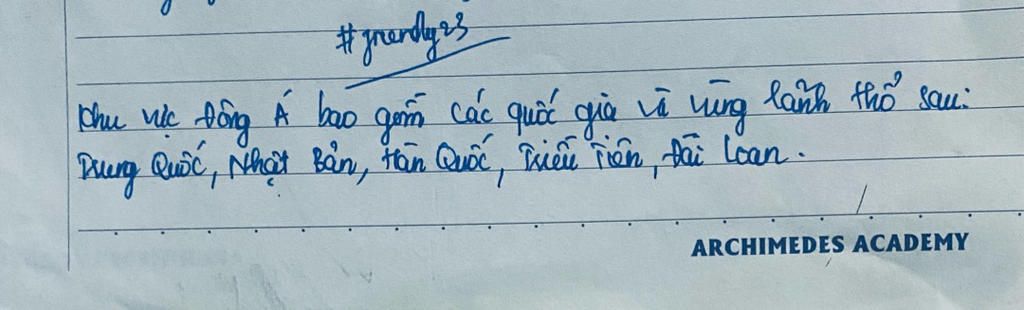 #jnerdly23
Khu vực Đông Á bao gồm các quốc gia và vùng lãnh thổ sau:
Trung Quốc, Nhật Bản, Hàn Quốc, Triều Tiên, Đài Loan.
ARCHIMEDES ACADEMY